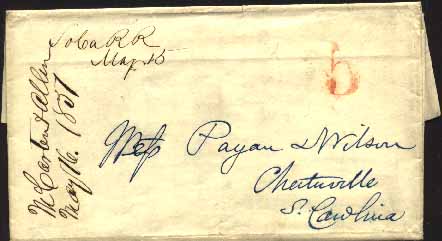 So Ca RR
May 15
5
McCarter & Allen
May 16. 1851
Mess Payan & Wilson
Cheituville
S. Carolina